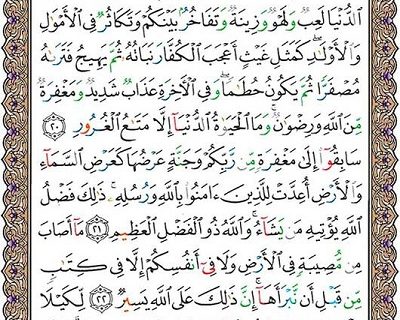 ٱلدُّنْيَا لَعِبٌ وَلَهْوٌ وَزِينَةٌ وَتَفَاخُرٌۢ بَيْنَكُمْ وَتَكَاثُرٌ فِى ٱلْأَمْوَٰلِ
وَٱلْأَوْلَٰدِ ۖ كَمَثَلِ غَيْثٍ أَعْجَبَ ٱلْكُفَّارَ نَبَاتُهُۥ ثُمَّ يَهِيجُ فَتَرَىٰهُ
مُصْفَرًّا ثُمَّ يَكُونُ حُطَٰمًا ۖ وَفِى ٱلْءَاخِرَةِ عَذَابٌ شَدِيدٌ وَمَغْفِرَةٌ
مِّنَ ٱللَّهِ وَرِضْوَٰنٌ ۚ وَمَا ٱلْحَيَوٰةُ ٱلدُّنْيَآ إِلَّا مَتَٰعُ ٱلْغُرُورِ ٢٠
سَابِقُوٓا۟ إِلَىٰ مَغْفِرَةٍ مِّن رَّبِّكُمْ وَجَنَّةٍ عَرْضُهَا كَعَرْضِ ٱلسَّمَآءِ
وَٱلْأَرْضِ أُعِدَّتْ لِلَّذِينَ ءَامَنُوا۟ بِٱللَّهِ وَرُسُلِهِۦ ۚ ذَٰلِكَ فَضْلُ
ٱللَّهِ يُؤْتِيهِ مَن يَشَآءُ ۚ وَٱللَّهُ ذُو ٱلْفَضْلِ ٱلْعَظِيمِ ٢١ مَآ أَصَابَ
مِن مُّصِيبَةٍ فِى ٱلْأَرْضِ وَلَا فِىٓ أَنفُسِكُمْ إِلَّا فِى كِتَٰبٍ
مِّن قَبْلِ أَن نَّبْرَأَهَآ ۚ إِنَّ ذَٰلِكَ عَلَى ٱللَّهِ يَسِيرٌ ٢٢ لِّكَيْلَا